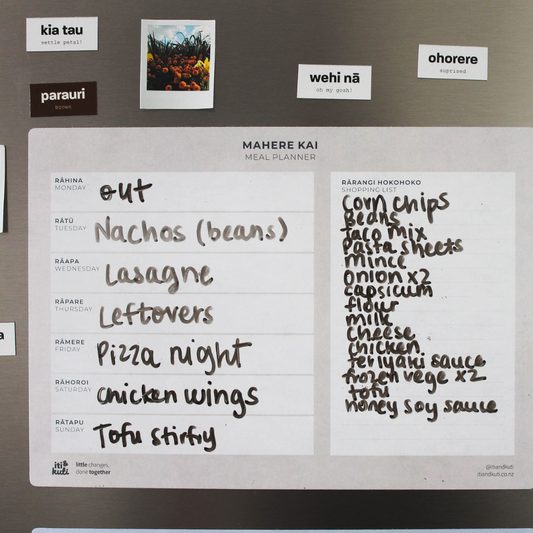 kia tau
settle petal!
ohorere
suprised
wehi nā
oh my gosh!
parauri
brown
MAHERE KAI
MEAL PLANNER
RĀHINA
MONDAY
out
RĀTŪ
TUESDAY
Nachos (beans)
RĀAPA
WEDNESDAY
Lasagne
RĀPARE
THURSDAY
Leftovers
RĀMERE
FRIDAY
Pizza night
RĀHOROI
SATURDAY
chicken wings
RĀTAPU
SUNDAY
Tofu stirfry
RĀRANGI HOKOHOKO
SHOPPING LIST
corn chips
Beans
taco mix
pasta sheets
mince
onion x2
capsicum
flour
milk
cheese
chicken
teriyaki sauce
frozen vege x2
tofu
honey soy sauce
iti &
kuti
little changes,
done together
@itiandkuti
itiandkuti.co.nz